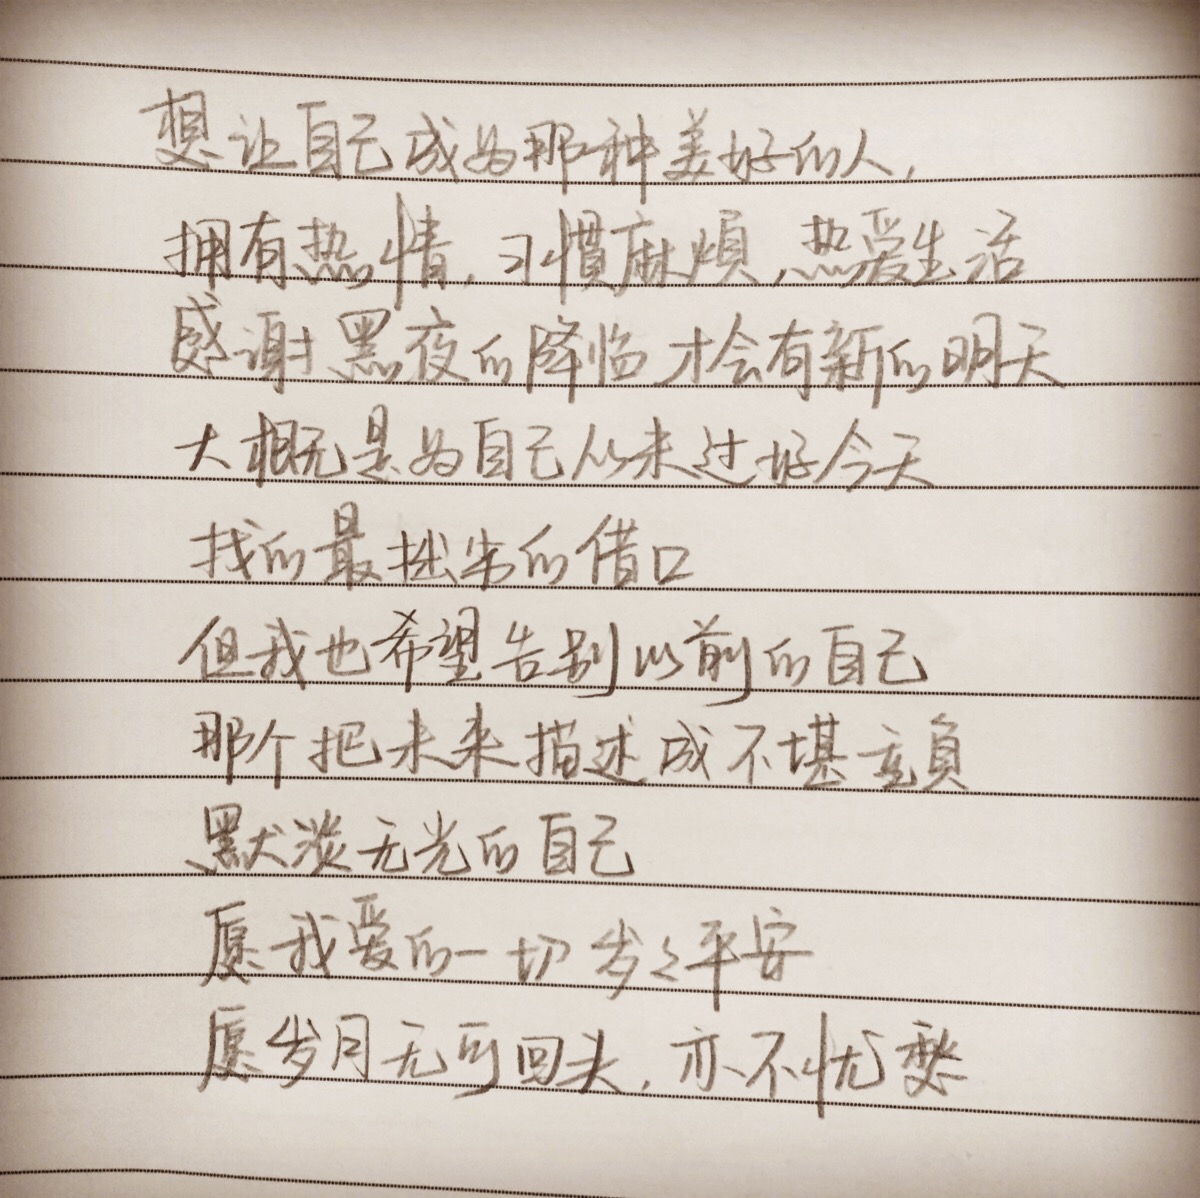 想让自己成为那种美好的人,
拥有热情,习惯麻烦,热爱生活
感谢黑夜的降临才会有新的明天
大概是为自己从未过好今天
找的最拙劣的借口
但我也希望告别以前的自己
那个把未来描述成不堪重负
黯淡无光的自己
愿我爱的一切岁々平安
愿岁月无可回头,亦不忧愁